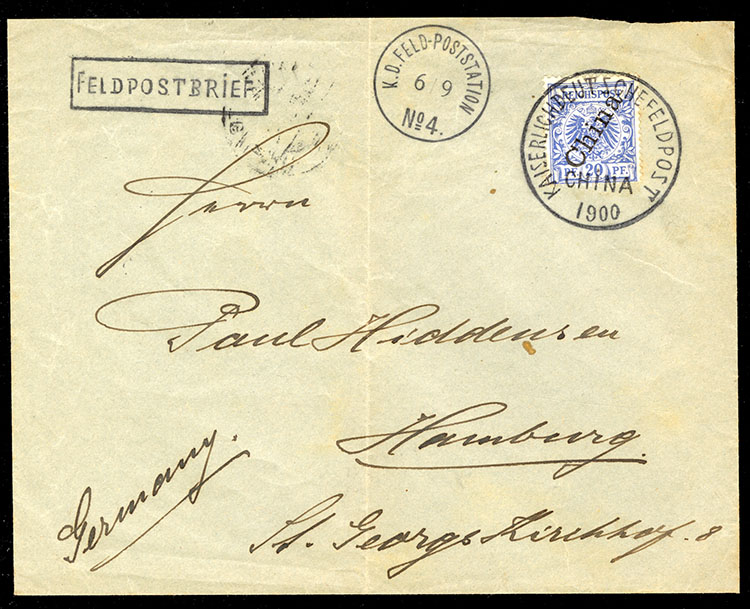 FELDPOSTBRIEF
K.D.FELD-POSTSTATION
6/9
No4.
KAISERLICHDEUTSCHEFELDPOST
REICHSPOST
China
20 PF.
CHINA
1900
Herrn
Paul Hiddensen
Hamburg.
Germany.
St. Georgs Kirchhof. 8